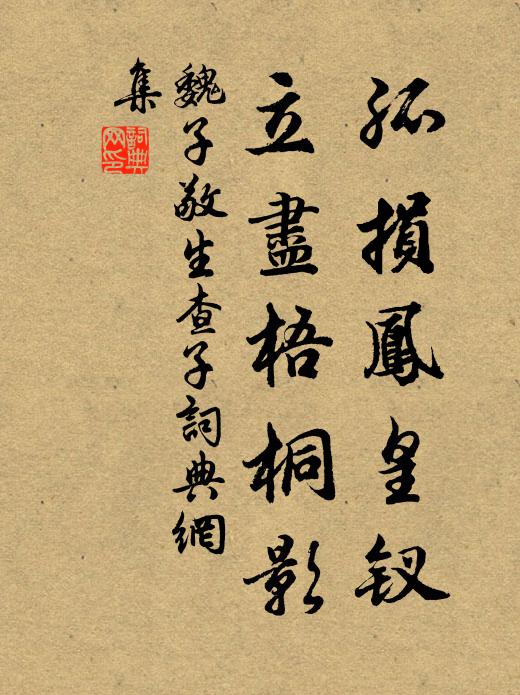 孤損鳳皇釵
立盡梧桐影
魏子敬生查子詞典網
集
詞典網印